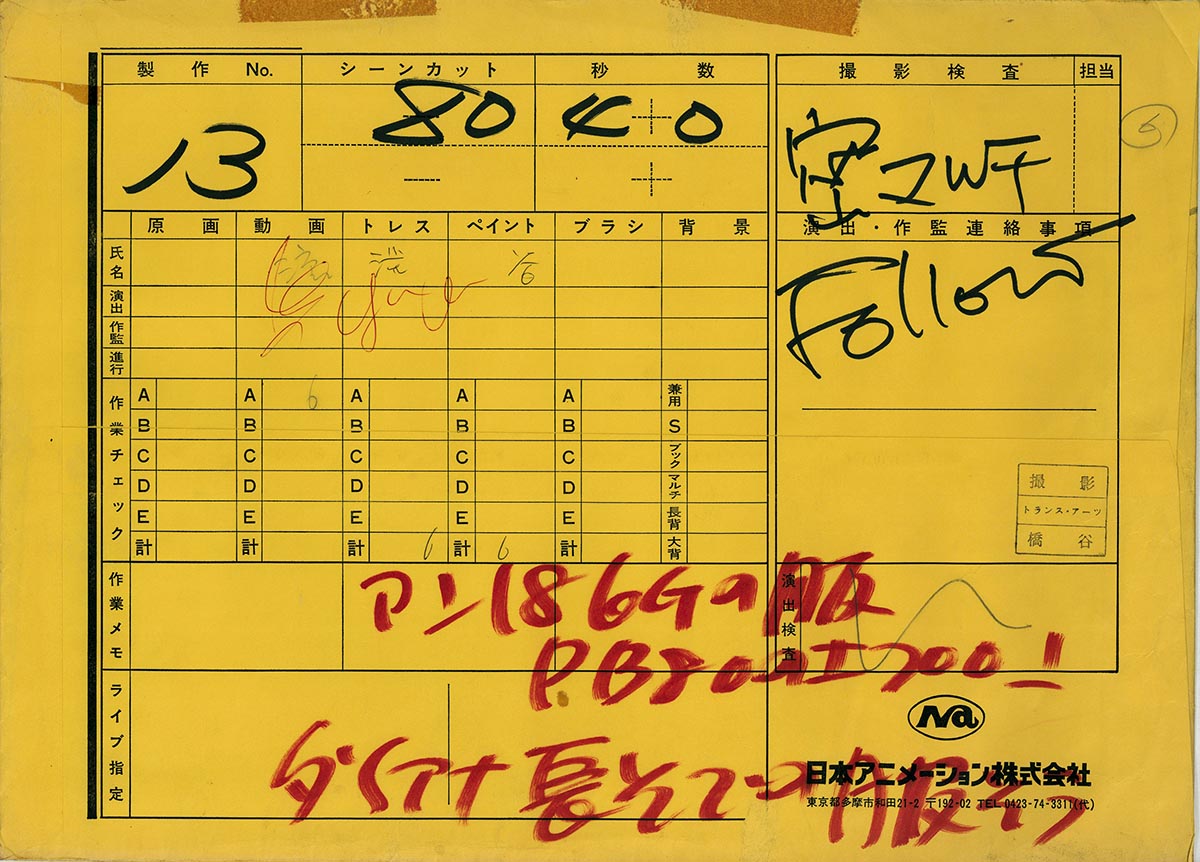 製作 No. シーンカット 秒数 撮影検査 担当
13 80 4 0
原画 動画 トレス ペイント ブラシ 背景 演出・作監連絡事項
Follow
氏名
谷
演出
作監
進行
作業チェック
A A 6 A A A 兼用
B B B B B S
C C C C C ブック
D D D D D マルチ
E E E E E 長背
計 計 計 6 計 6 計 大背
撮影
トランス・アーツ
橋谷
作業メモ
演出検査
アン186Gの服
ライブ指定
ダイアナ長そでの
Na
日本アニメーション株式会社
東京都多摩市和田21-2 〒192-02 TEL 0423-74-3311(代)